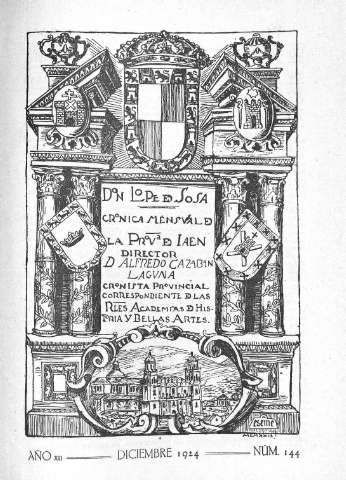 DON LOPE D SOSA
CRONICA MENSVAL D
LA PRVª D IAEN
DIRECTOR
D. ALFREDO CAZABAN
LAGUNA
CRONISTA PROVINCIAL
CORRESPONDIENTE D LAS
RLES ACADEMIAS D HIS-
TORIA Y BELLAS ARTES.
AÑO XII —— DICIEMBRE 1924 —— NÚM. 144